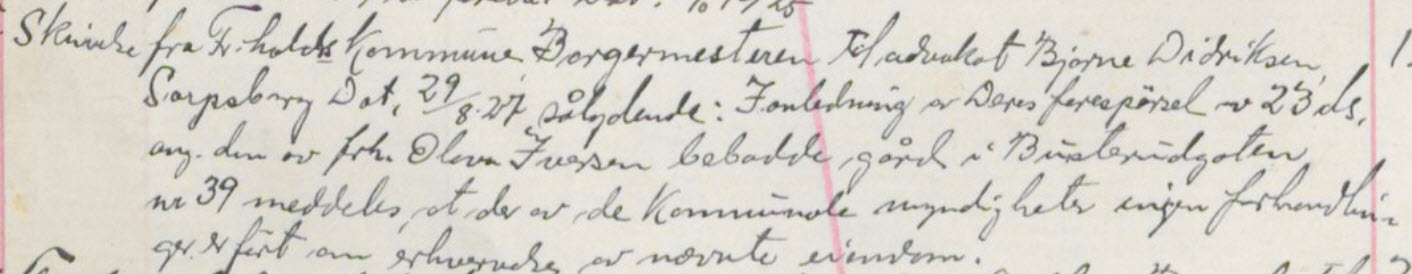 Skrivelse fra Fr.halds Kommune, Borgermesteren Til advokat Bjarne Didriksen,
Sarpsborg Dat, 29/8.27 sålydende: I anledning av Deres forespørsel av 23 ds.
ang. den av frk. Olava Iversen bebodde gård i Busterudgaten
nr 39 meddeles, at der av de Kommunale myndigheter ingen forhandlin-
ger er ført om erhvervelse av nævnte eiendom.